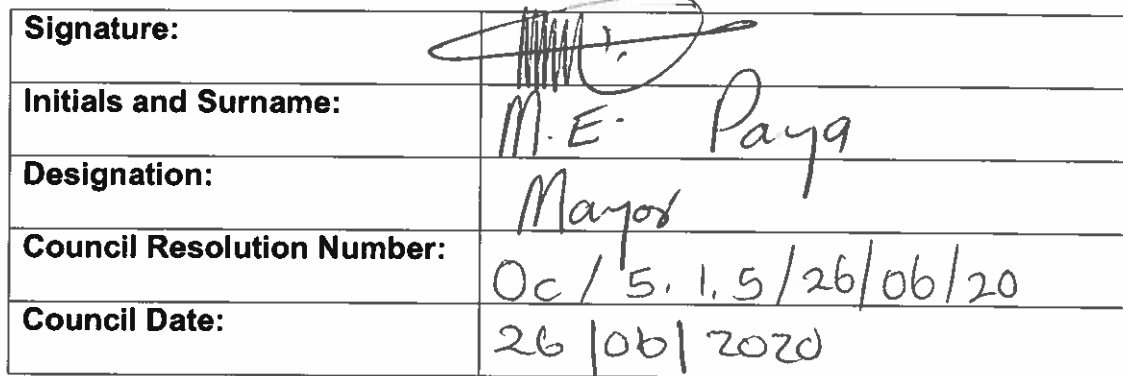 Signature:
Initials and Surname: M.E. Paya
Designation: Mayor
Council Resolution Number: Oc/5.1.5/26/06/20
Council Date: 26/06/2020